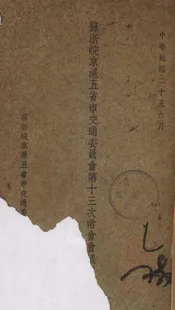 中華民國二十五年六月
蘇浙皖京滬五省市交通委員會第十三次常會會議
蘇浙皖京滬五省市交通委